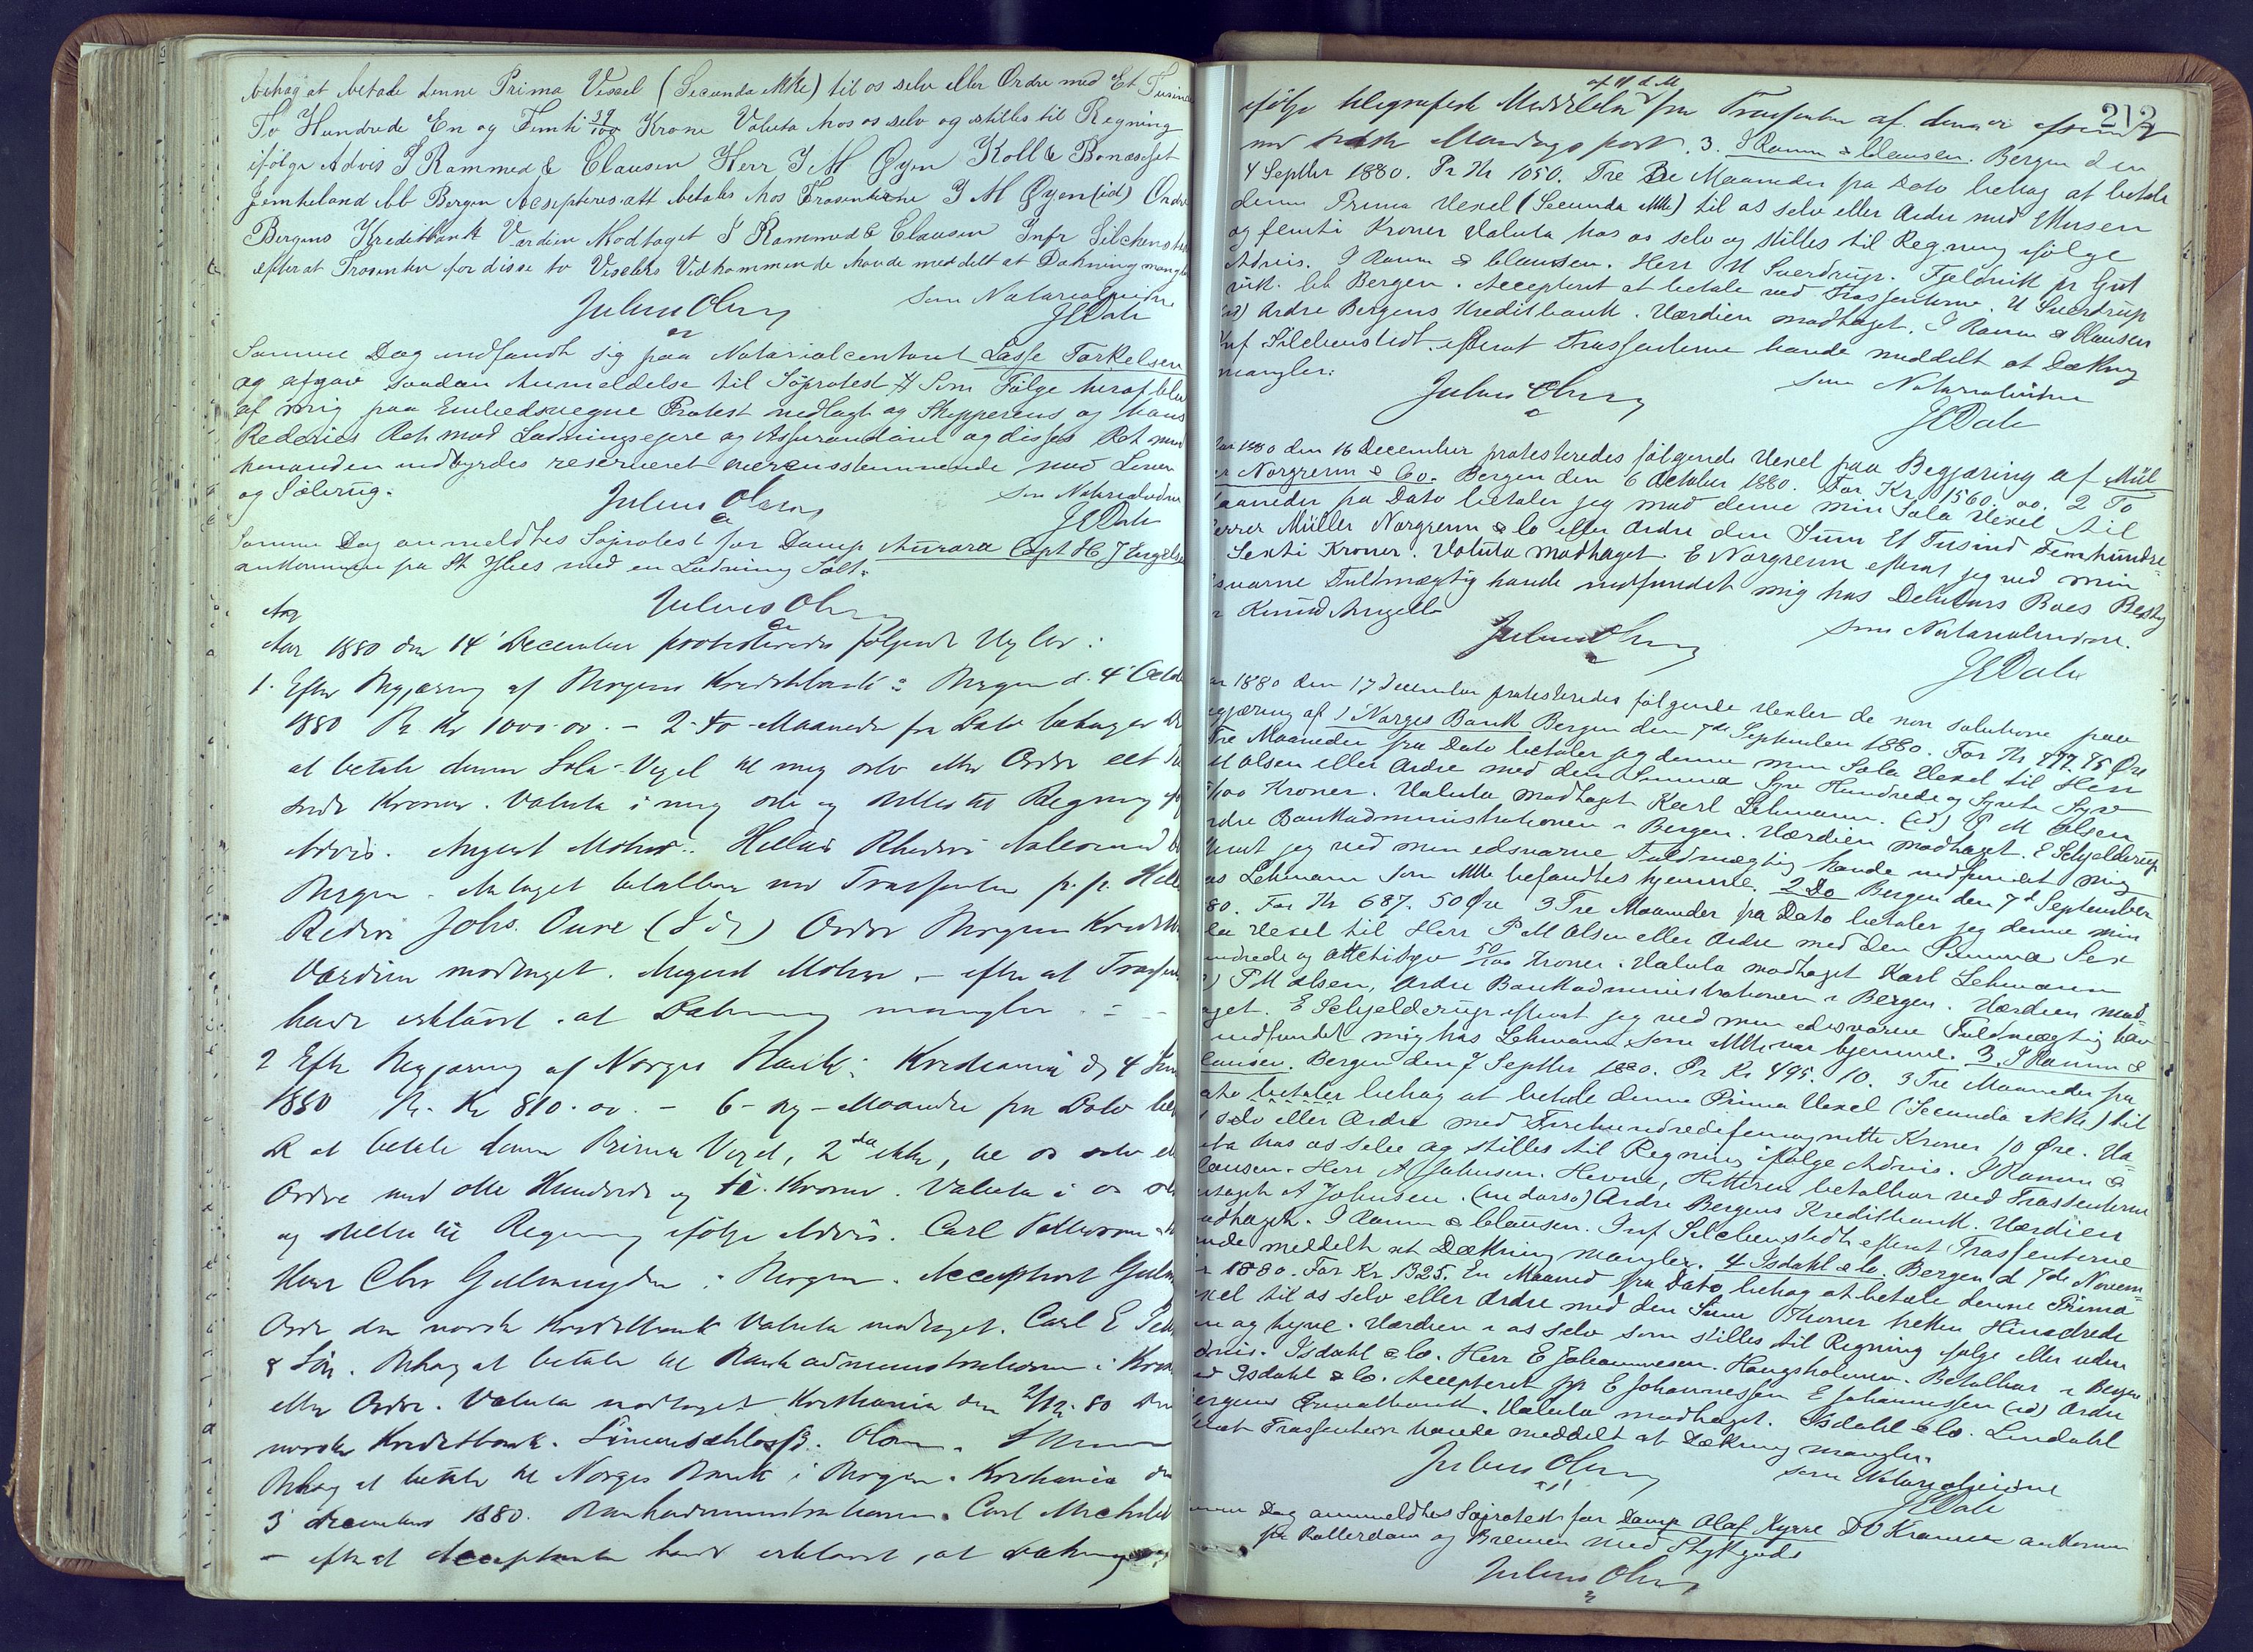 behag at betale denne Prima Vexel (Secunda ikke) til os selv eller Ordre med Et Tusind
To Hundrede En og Femti 39/100 Krone Valuta hos os selv og stilles til Regning
ifølge Advis J Rammed & Clausen Herr J M Øyen Koll & Bonæset
Jemteland bb Bergen Accepteres att betales hos Trasenterne J M Øyen (id) Ordre
Bergens Kreditbank Værdien Modtaget J Rammed & Clausen Infr Silchenstedt
efterat Trasenten for disse to Vexlers Vedkommende havde meddelt at Dækning mangler
Julius Olsen
som Notarialvidne
J E Dale
Samme Dag indfandt sig paa Notarialcontoret Lasse Torkelsen
og afgav saadan Anmeldelse til Söprotest # Som Følge heraf blev
af mig paa Embedsvegne Protest nedlagt og Skipperens og hans
Rederies Ret mod Ladningsejere og Assurandörer og disses Ret mod
hinanden indbyrdes reserveret overensstemmende med Loven
og Sölovg.
Julius Olsen
som Notarialvidne
J E Dale
Samme Dag anmeldtes Söprotest for Damp Aurora Capt H J Engelsen
ankommen fra St Ybes med en Ladning Salt.
Julius Olsen
Aar
Aar 1880 den 14 December protesteredes følgende Vexler:
1. Efter Begjæring af Bergens Kreditbank: Bergen d. 4 Octob
1880 Pr. Kr 1000.00. – 2-to-Maaneder fra Dato behager De
at betale denne Sola-Vexel til mig selv eller Ordre eet Tu
sinde Kroner. Valuta i mig selv og stilles til Regning
Advis. August Mohr. Hellas Rhederi Aalesund
Bergen. Antaget betalbar ved Trassenten p. p. Hellas
Rederi Johs. Aure (Id) Ordre Bergens Kreditbank
Værdien modtaget. August Mohr – efter at Trassenten
havde erklæret at Dækning mangler. –
2 Efter Begjæring af Norges Bank: Kristiania d. 4 Juni
1880 Pr. Kr 810.00. – 6-sex-Maaneder fra Dato beha
De at betale denne Prima Vexel, 2da ikke, til os selv el
Ordre med otte Hundrede og ti Kroner. Valuta i os selv
og stilles til Regning ifølge Advis. Carl
Herr Chr : Bergen. Accepteret
Ordre den norske Kreditbank Valuta modtaget. Carl E
& Søn. Behag at betale til Bankadministrationen i Krist
eller Ordre. Valuta modtaget Kristiania den 2/12 80 Den
norske Kreditbank. Olsen.
Behag at betale til Norges Bank i Bergen. Kristiania den
3 december 1880. Bankadministrationen. Carl
– efter at Acceptanten havde erklæret, at Dækning
212
af 11 d M
ifølge telegrafisk Meddelelse fra Trassenten af
med næste Mandags post. 3. J Ramm & Clausen. Bergen den
4 Septbr 1880. Pr Kr 1050. Tre Maaneder fra Dato behag at betale
denne Prima Vexel (Secunda ikke) til os selv eller Ordre med Ettusen
og femti Kroner Valuta hos os selv og stilles til Regning ifølge
Advis. J Ramm & Clausen. Herr M Sverdrup. Fjeldvik pr Gut
vik. bb Bergen. Accepteret at betale ved Trassenterne. M Sverdrup
(id) Ordre Bergens Kreditbank. Værdien modtaget. J Ramm & Clausen
Inf Silchenstedt. efterat Trassenterne havde meddelt at Dækning
mangler:
Julius Olsen
som Notarialvidne
J E Dale
Aar 1880 den 16 December protesteredes følgende Vexel paa Begjæring af Mül
ler Norgrenn & Co. Bergen den 6 October 1880. For Kr 1560.00. 2 To
Maaneder fra Dato betaler jeg mod denne min Sola Vexel til
Herrer Müller Norgrenn & Co eller Ordre den Sum Et Tusind Femhundre-
Sexti Kroner. Valuta modtaget. E Norgrenn efterat jeg ved min
edsvorne Fuldmægtig havde indfundet mig hos Debitors Boes Besty
Knud Angell
Julius Olsen
som Notarialvidne.
J E Dale
Aar 1880 den 17 December protesteredes følgende Vexler de non solutione paa
Begjæring af 1 Norges Bank Bergen den 7de September 1880. For Kr 777.75 Øre
Tre Maaneder fra Dato betaler jeg denne min Sola Vexel til Herr
M Olsen eller Ordre med den Summa Syv Hundrede og Sytti Syv
75/100 Kroner. Valuta modtaget Karl Lehmann. (id) P M Olsen
Ordre Bankadministrationen i Bergen. Værdien modtaget. E Schjelderup
efterat jeg ved min edsvorne Fuldmægtig havde indfundet mig
hos Lehmann som ikke befandtes hjemme. 2 Do Bergen den 7d September
80. For Kr 687.50 Øre 3 Tre Maaneder fra Dato betaler jeg denne min
Sola Vexel til Herr P M Olsen eller Ordre med den Summa Sex
hundrede og ottetisyv 50/100 Kroner. Valuta modtaget Karl Lehmann
(id) P M Olsen, Ordre Bankadministrationen i Bergen. Værdien mod-
taget. E Schjelderup efterat jeg ved min edsvorne Fuldmægtig hav-
indfundet mig hos Lehmann som ikke var hjemme. 3 J Ramm &
Clausen. Bergen den 7 Septbr 1880. Pr Kr 495.10. 3 Tre Maaneder fra
Dato betaler behag at betale denne Prima Vexel (Secunda ikke) til
os selv eller Ordre med Firehundredefemognitti Kroner 10 Øre. Va-
luta hos os selv og stilles til Regning ifølge Advis. J Ramm &
Clausen. Herr A Johnsen. Hevne, Hitteren betalbar ved Trassenterne
antaget A Johnsen. (in dorso) Ordre Bergens Kreditbank. Værdien
modtaget. J Ramm & Clausen. Inf Silchenstedt efterat Trassenterne
havde meddelt at Dækning mangler. 4 Isdahl & Co. Bergen d 7de Novem-
ber 1880. For Kr. 1325. En Maaned fra Dato behag at betale denne Prima
Vexel til os selv eller Ordre med den Sum Kroner tretten Hundrede
fem og tyve. Værdien i os selv som stilles til Regning ifølge eller uden
Advis. Isdahl & Co. Herr E Johannesen. Haugsholmen. Betalbar i Bergen
ved Isdahl & Co. Accepteret pp E Johannessen E Johannessen (id) Ordre
Bergens Privatbank. Valuta modtaget. Isdahl & Co. Lindahl
efterat Trassenten havde meddelt at Dækning mangler.
Julius Olsen
som Notarialvidne
J E Dale
Samme Dag anmeldtes Søprotest for Damp Olaf Kyrre D V Kramer ankommen
fra Rotterdam og Bremen med Stykgods
Julius Olsen